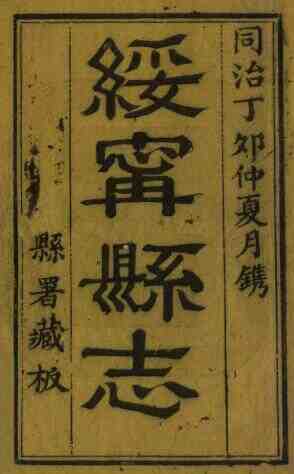 同治丁卯仲夏月鐫
綏寧縣志
縣署藏板